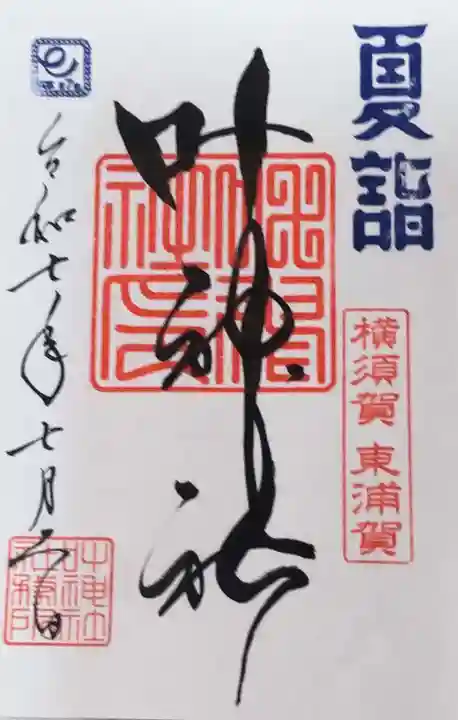 夏詣
横須賀 東浦賀
叶神社
令和七年七月六日